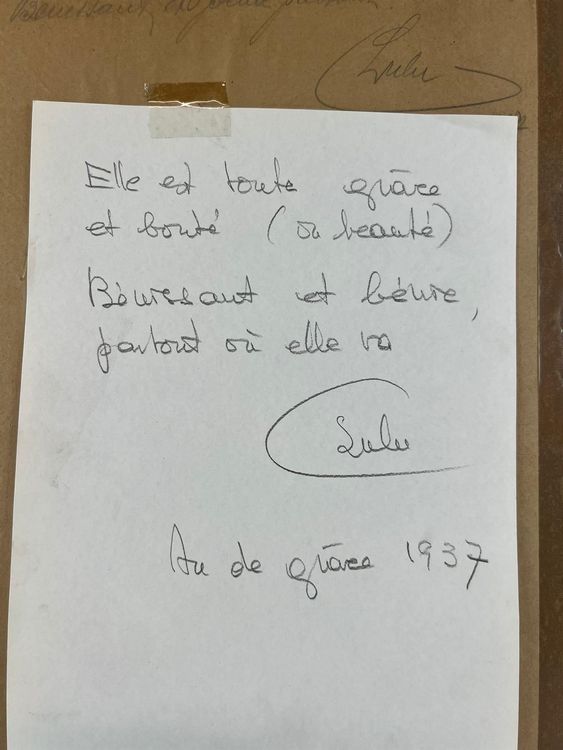 Bénissant et bénie partout
Lulu
Elle est toute grâce
et bonté (ou beauté)
Bénissant et bénie,
partout où elle va
Lulu
An de grâce 1937